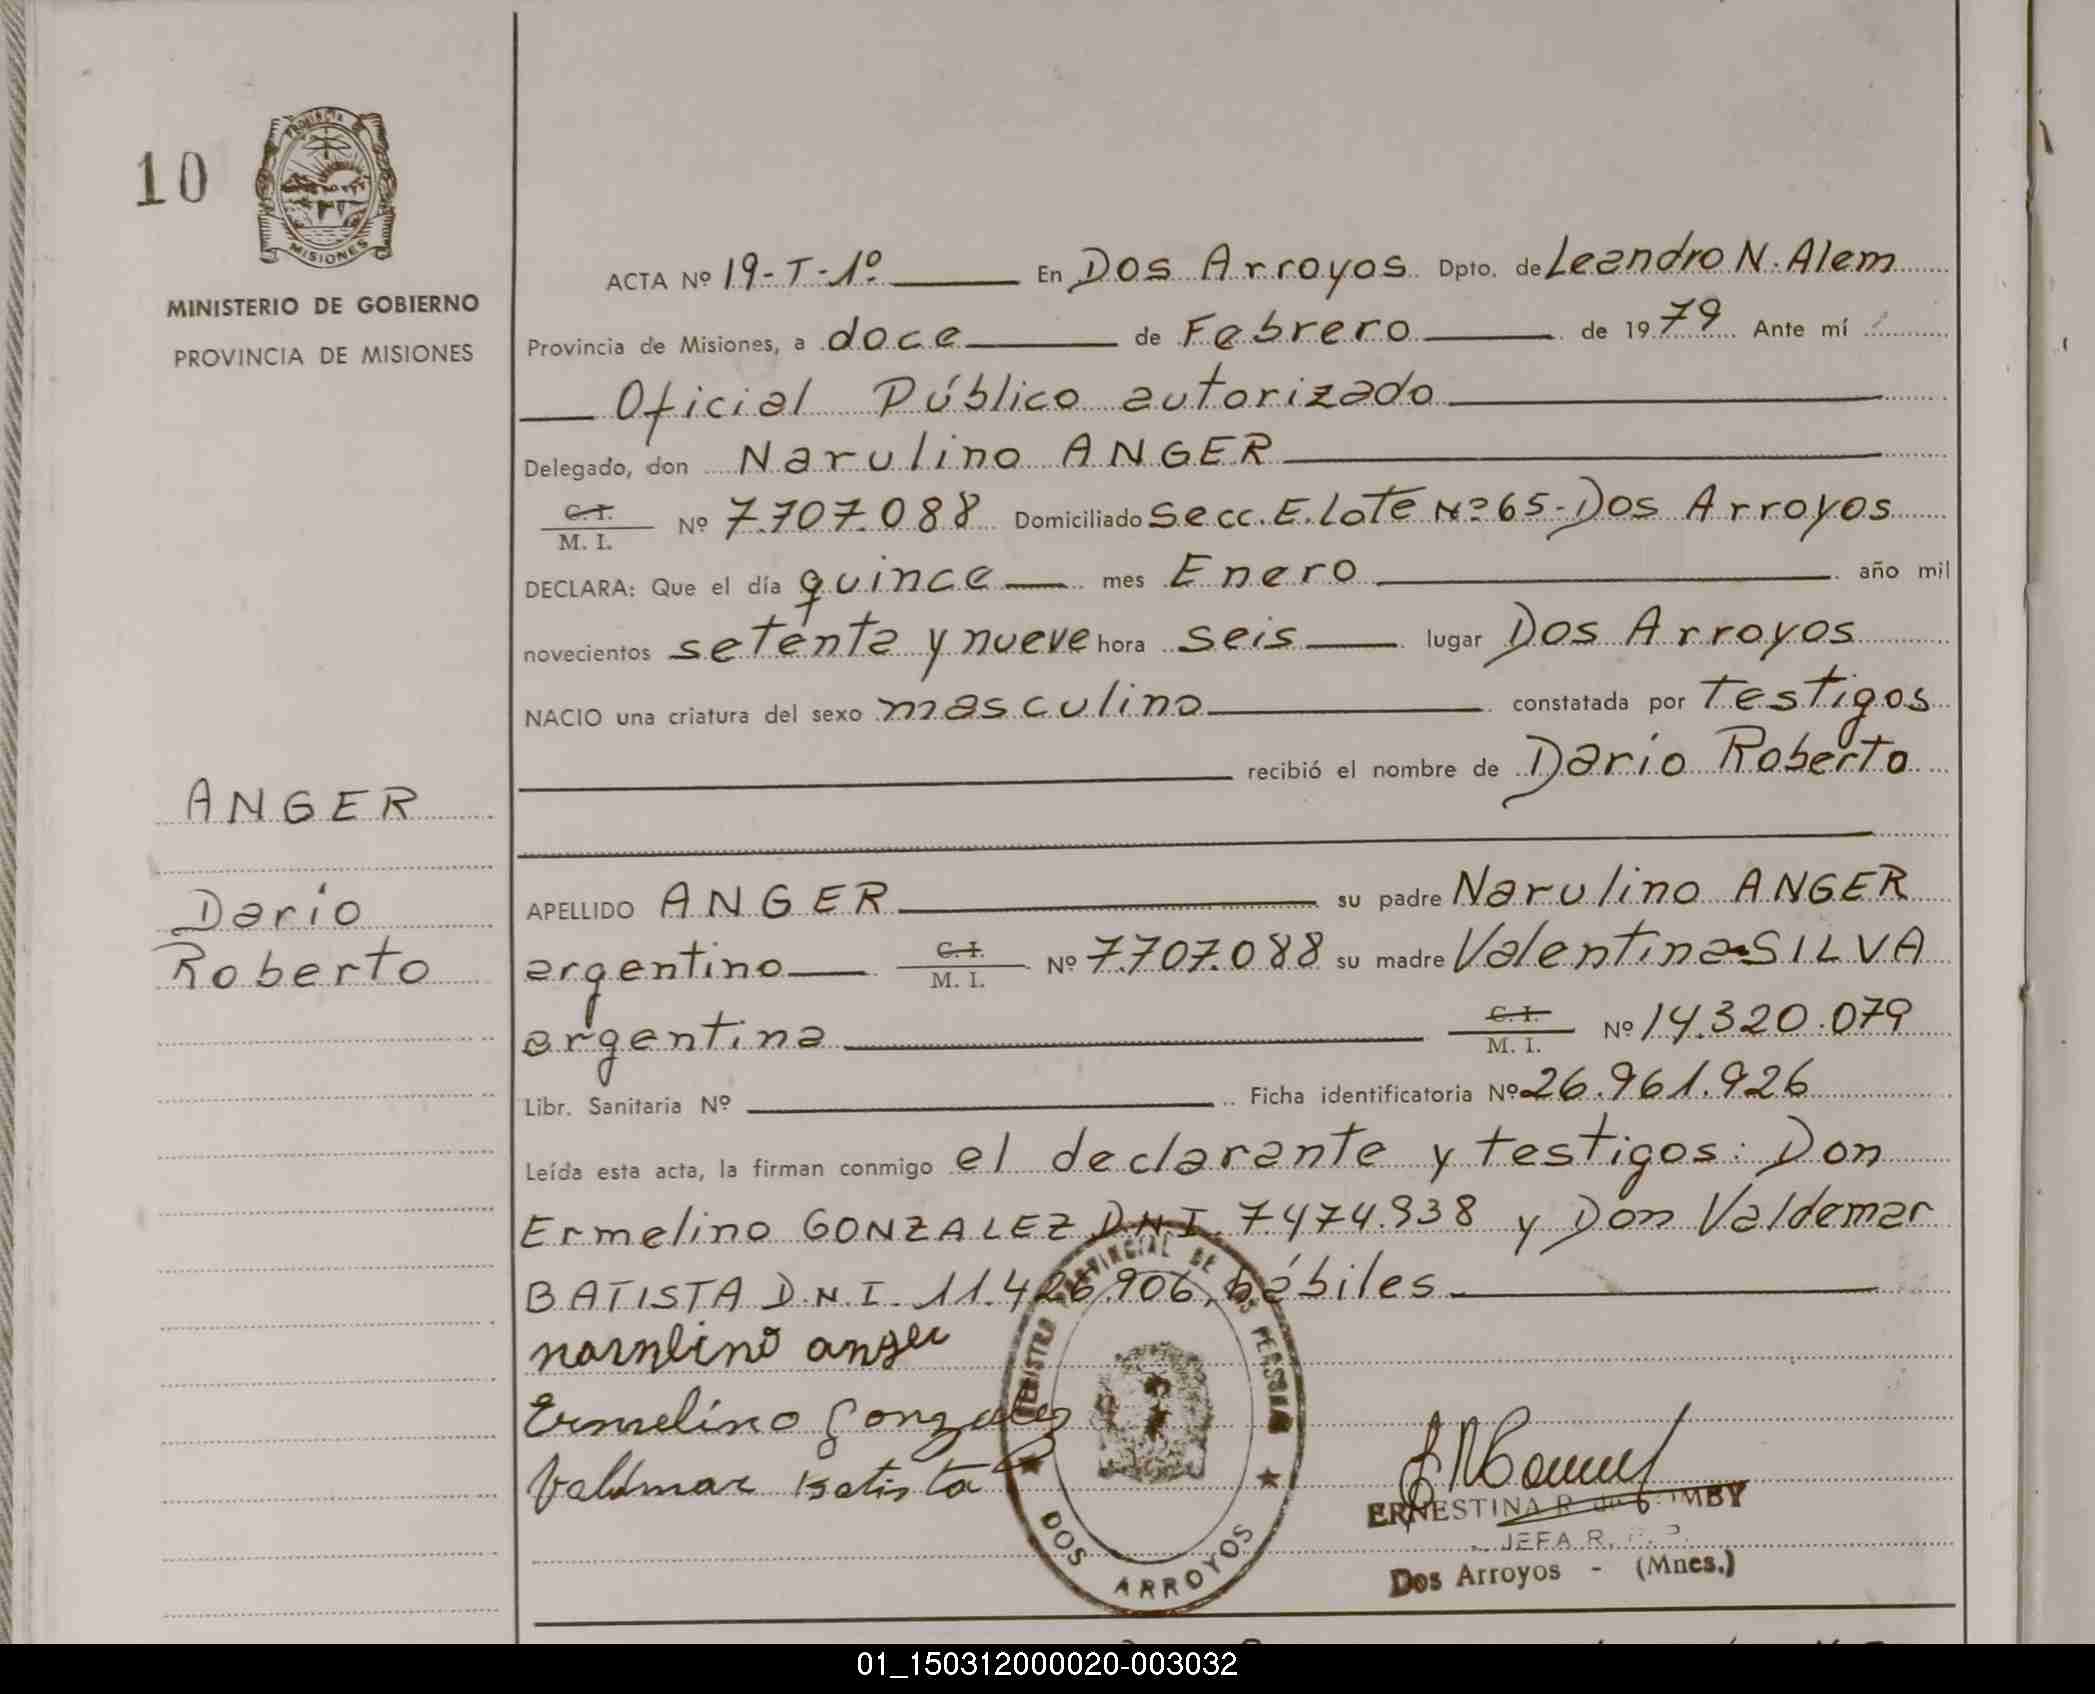 10
PROVINCIA DE
MISIONES
MINISTERIO DE GOBIERNO
PROVINCIA DE MISIONES
ACTA Nº 19-T-1º En Dos Arroyos Dpto. de Leandro N. Alem
Provincia de Misiones, a doce de Febrero de 1979 Ante mí
Oficial Público autorizado
Delegado, don Narulino ANGER
C. I.
M. I. Nº 7.707.088 Domiciliado Secc. E. Lote Nº 65-Dos Arroyos
DECLARA: Que el día quince mes Enero año mil
novecientos setenta y nueve hora seis lugar Dos Arroyos
NACIO una criatura del sexo masculino constatada por Testigos
recibió el nombre de Darío Roberto
ANGER
Darío
Roberto
APELLIDO ANGER su padre Narulino ANGER
argentino C. I. M. I. Nº 7.707.088 su madre Valentina SILVA
argentina C. I. M. I. Nº 14.320.079
Libr. Sanitaria Nº Ficha identificatoria Nº 26.961.926
Leída esta acta, la firman conmigo el declarante y testigos: Don
Ermelino GONZALEZ D.N.I. 7.474.938 y Don Valdemar
BATISTA D.N.I. 11.426.906, hábiles
narulino anger
Ermelino Gonzalez
Valdmar Batista
REGISTRO PROVINCIAL DE LAS PERSONAS
DOS ARROYOS
ERNESTINA R de
JEFA R.
Dos Arroyos - (Mnes.)
01_150312000020-003032